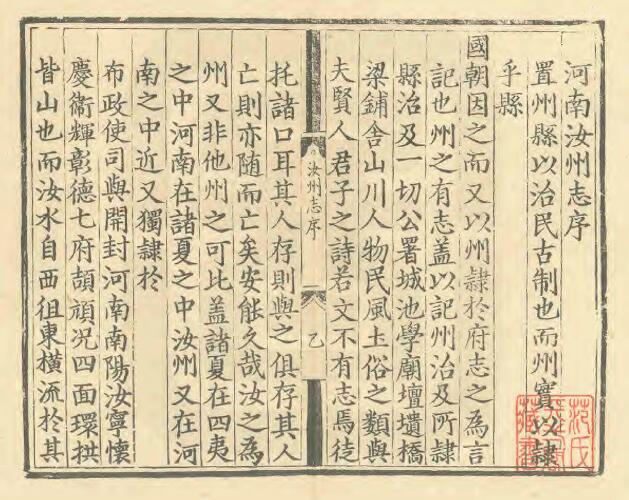 河南汝州志序
置州縣以治民古制也而州實以隸
乎縣
國朝因之而又以州隸於府志之為言
記也州之有志盖以記州治及所隸
縣治及一切公署城池學廟壇壝橋
梁鋪舎山川人物民風土俗之類與
夫賢人君子之詩若文不有志焉徒
汝州志序
乙
托諸口耳其人存則與之俱存其人
亡則亦随而亡矣安能久哉汝之為
州又非他州之可比盖諸夏在四夷
之中河南在諸夏之中汝州又在河
南之中近又獨隸於
布政使司與開封河南南陽汝寧懷
慶衛輝彰德七府頡頏况四面環拱
皆山也而汝水自西徂東横流於其
范氏
藏書